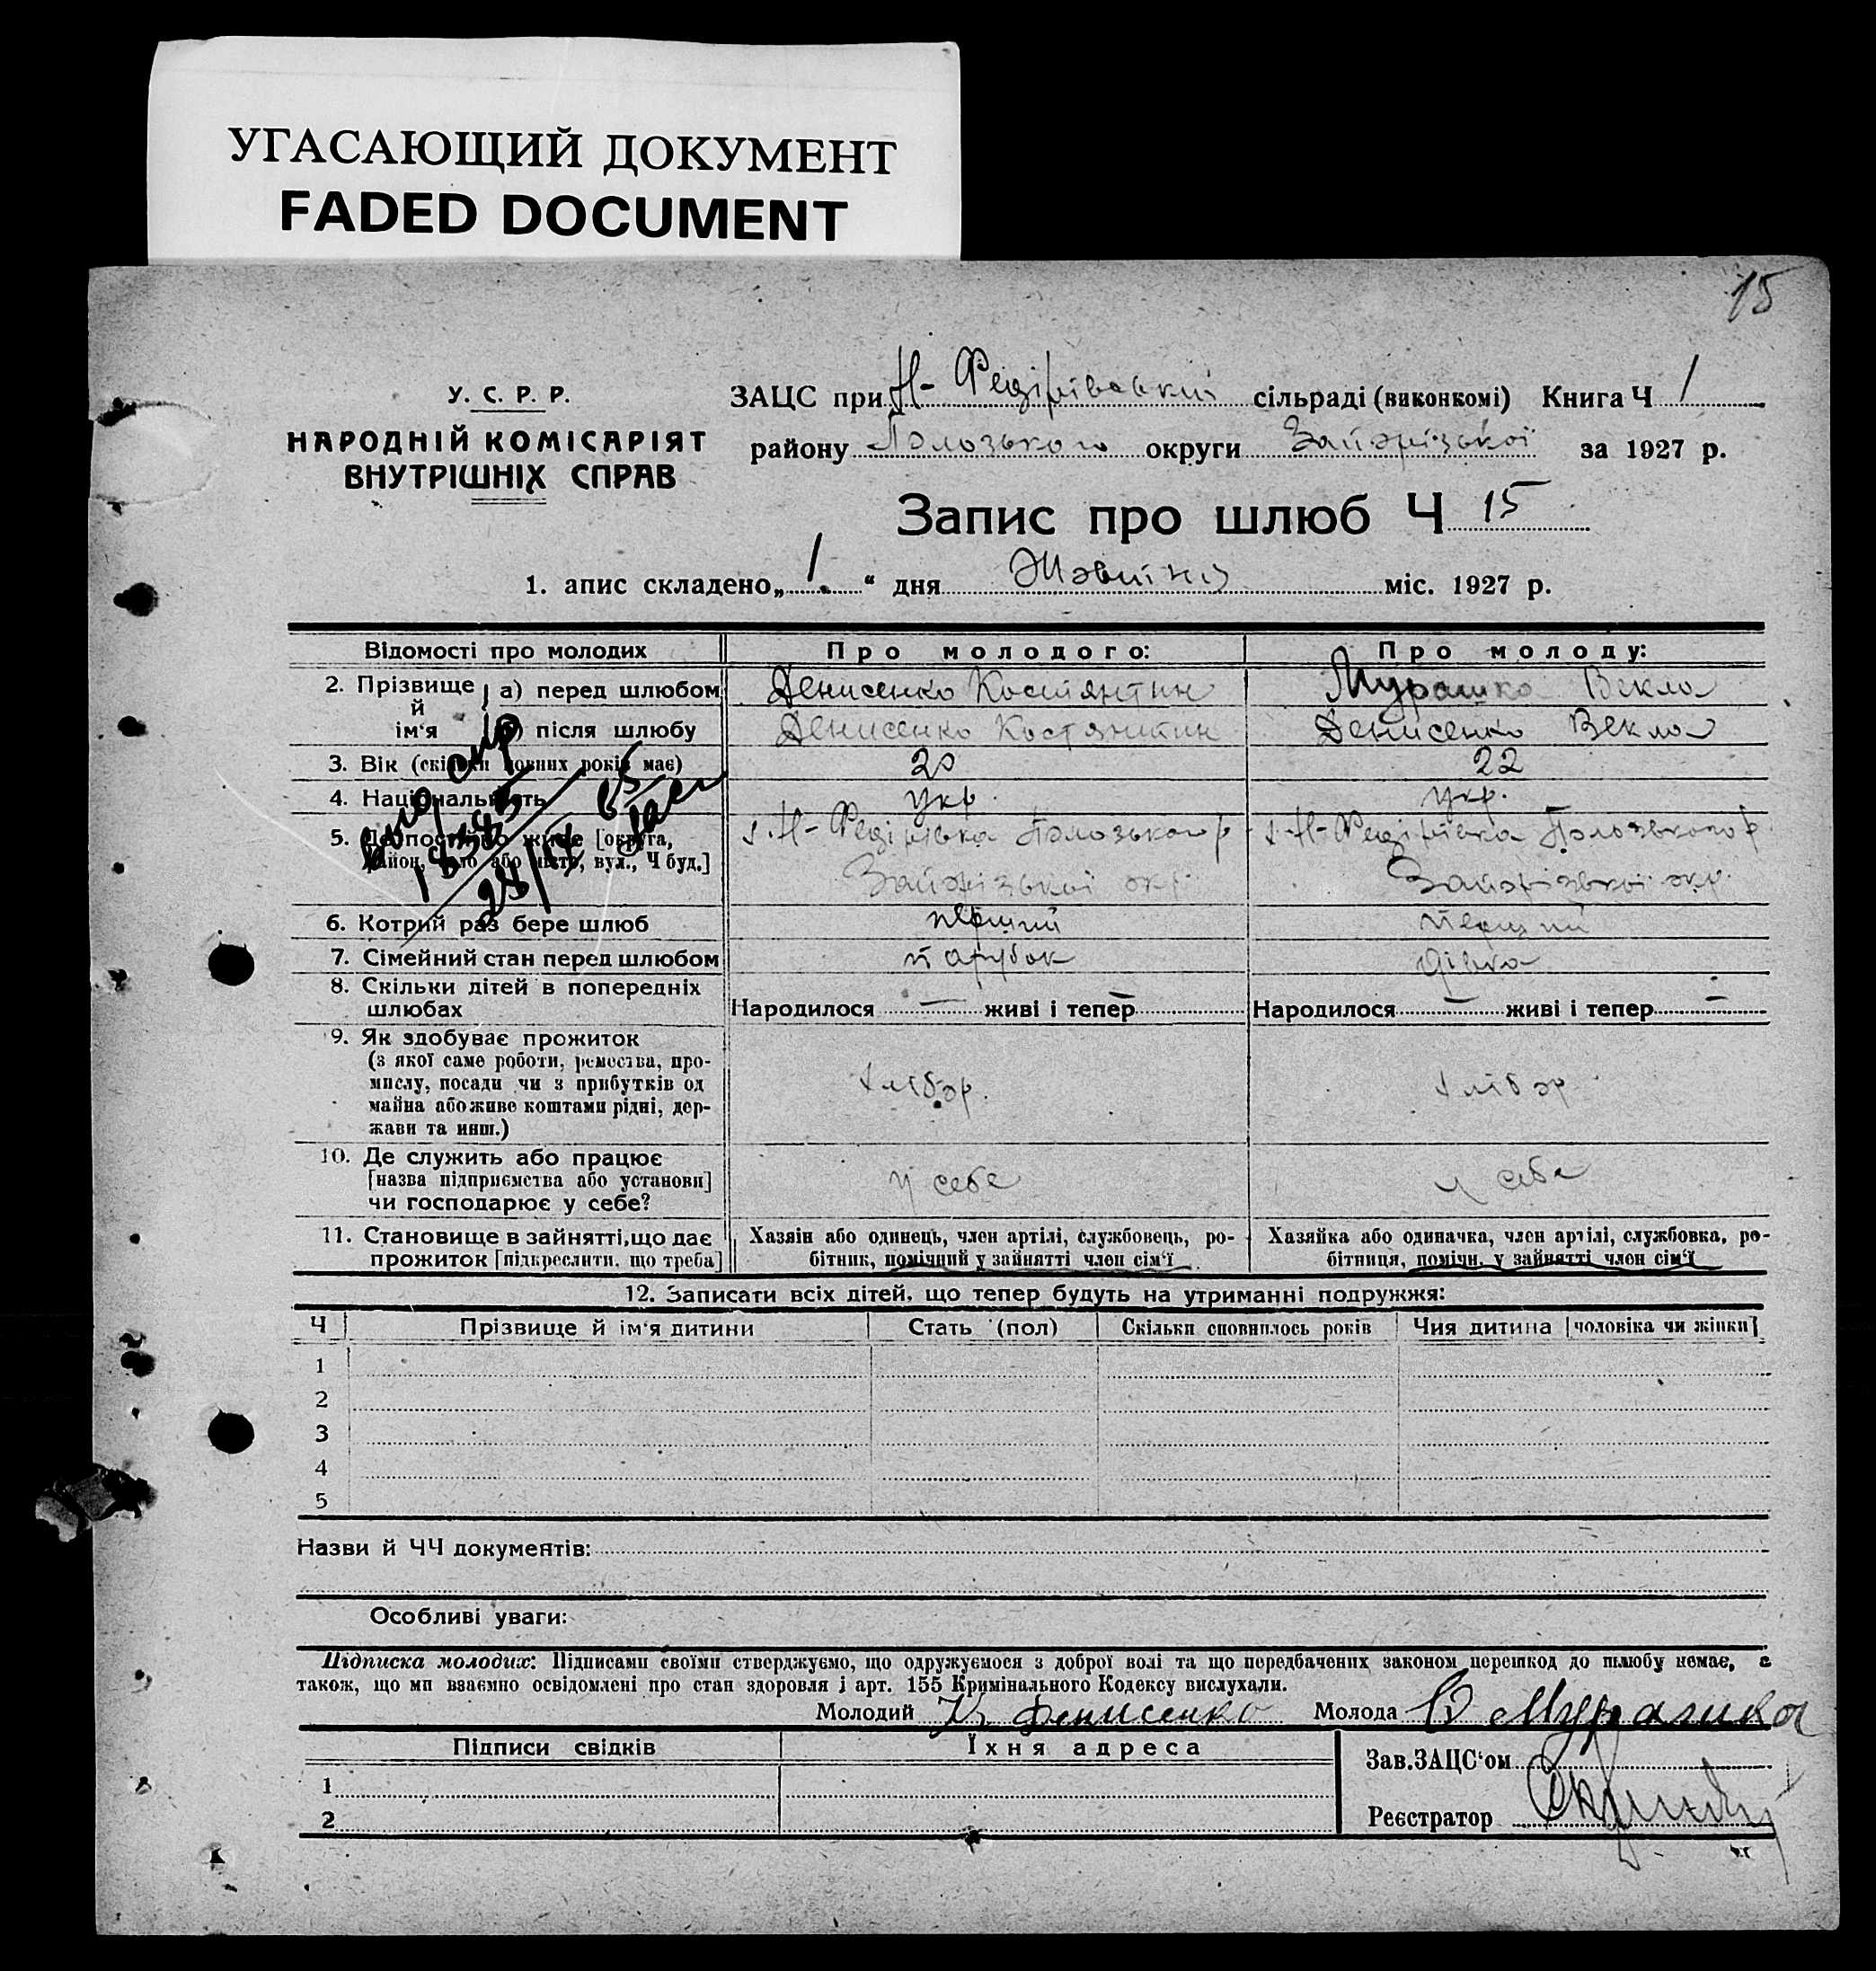 УГАСАЮЩИЙ ДОКУМЕНТ
FADED DOCUMENT
15
У. С. Р. Р.
НАРОДНІЙ КОМІСАРІЯТ
ВНУТРІШНІХ СПРАВ
ЗАЦС при Н-Федірівський сільраді (виконкомі) Книга Ч 1
району Полозького округи Запорізької за 1927 р.
Запис про шлюб Ч 15
1. апис складено „ 1 “ дня Жовтня міс. 1927 р.
Відомості про молодих Про молодого: Про молоду:
2. Прізвище й ім'я а) перед шлюбом Денисенко Костянтин Мурашко Векла
б) після шлюбу Денисенко Костянтин Денисенко Векла
3. Вік (скільки повних років має) 20 22
4. Національність укр. укр.
5. Де постійно живе [округа, район, село або місто, вул., Ч буд.] с. Н-Федірівка Полозького р с. Н-Федірівка Полозького р.
Запорізької окр. Запорізької окр.
6. Котрий раз бере шлюб перший перший
7. Сімейний стан перед шлюбом парубок дівка
8. Скільки дітей в попередніх шлюбах Народилося — живі і тепер — Народилося — живі і тепер —
9. Як здобуває прожиток
(з якої саме роботи, ремества, про-
мислу, посади чи з прибутків од
майна або живе коштами рідні, дер-
жави та инш.) хлібор. хлібор
10. Де служить або працює
[назва підприємства або установи]
чи господарює у себе? у себе у себе
11. Становище в зайнятті, що дає Хазяїн або одинець, член артілі, службовець, ро- Хазяйка або одиначка, член артілі, службовка, ро-
прожиток [підкреслити, що треба] бітник, помічний у зайнятті член сім'ї бітниця, помічн. у зайнятті член сім'ї
12. Записати всіх дітей, що тепер будуть на утриманні подружжя:
Ч Прізвище й ім'я дитини Стать (пол) Скільки сповнилось років Чия дитина [чоловіка чи жінки]
1
2
3
4
5
Назви й ЧЧ документів:
Особливі уваги:
Підписка молодих: Підписами своїми стверджуємо, що одружуємося з доброї волі та що передбачених законом перешкод до шлюбу немає, а
також, що ми взаємно освідомлені про стан здоровля і арт. 155 Кримінального Кодексу вислухали.
Молодий К Денисенко Молода В Мурашко
Підписи свідків Їхня адреса Зав. ЗАЦС'ом
1
2 Реєстратор